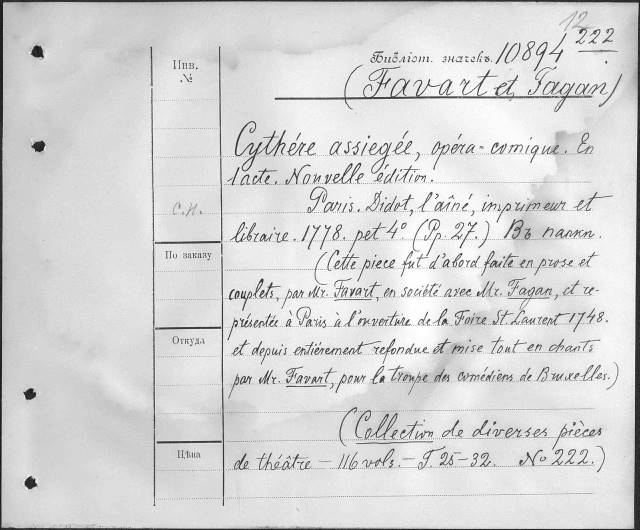 12
222
Библіот. значекъ. 10894
(Favart et Fagan)
Инв.
№
Cythére assiegée, opéra-comique. En
1 acte. Nouvelle édition.
с.н.
Paris. Didot, l'aîné, imprimeur et
libraire. 1778. pet 4º (Pp. 27.) Въ папкѣ.
По заказу
(Cette piece fut d'abord faite en prose et
couplets, par Mr. Favart, en société avec Mr. Fagan, et re-
présentée à Paris à l'ouverture de la Foire St. Laurent 1748.
Откуда
et depuis entiérement refondue et mise tout en chants
par Mr. Favart, pour la troupe des comédiens de Bruxelles.)
(Collection de diverses pièces
Цѣна
de théâtre – 116 vols. – T. 25-32. No 222.)